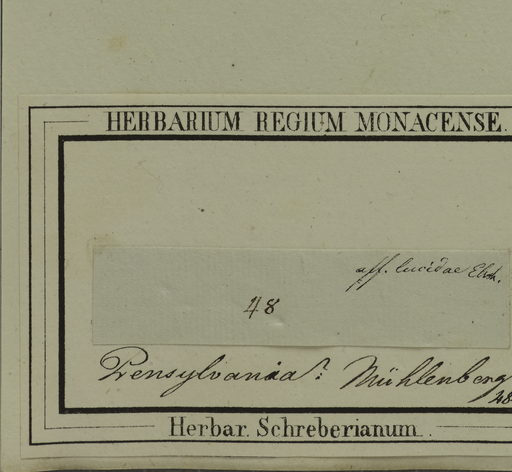 HERBARIUM REGIUM MONACENSE.
aff. lucidae Ehrh.
48
Pensylvania? Mühlenberg
48
Herbar. Schreberianum.